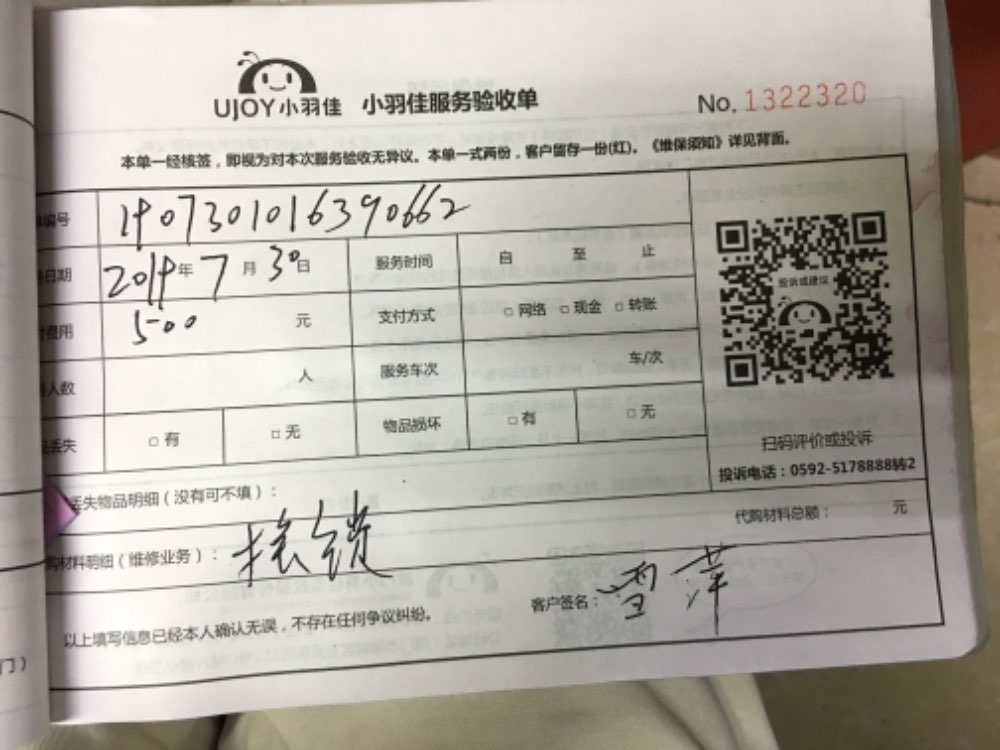 UJOY小羽佳 小羽佳服务验收单 No. 1322320
本单一经核签，即视为对本次服务验收无异议。本单一式两份，客户留存一份(红)。《维保须知》详见背面。
编号 1907301016390662
日期 2019年 7 月 30日 服务时间 自 至 止
费用 500 元 支付方式 □ 网络 □ 现金 □ 转账
人数 人 服务车次 车/次
丢失 □ 有 □ 无 物品损坏 □ 有 □ 无
投诉或建议
扫码评价或投诉
投诉电话：0592-5178888转2
丢失物品明细（没有可不填）：
代购材料总额： 元
购材料明细（维修业务）： 换锁
以上填写信息已经本人确认无误，不存在任何争议纠纷。 客户签名： 萍
门）